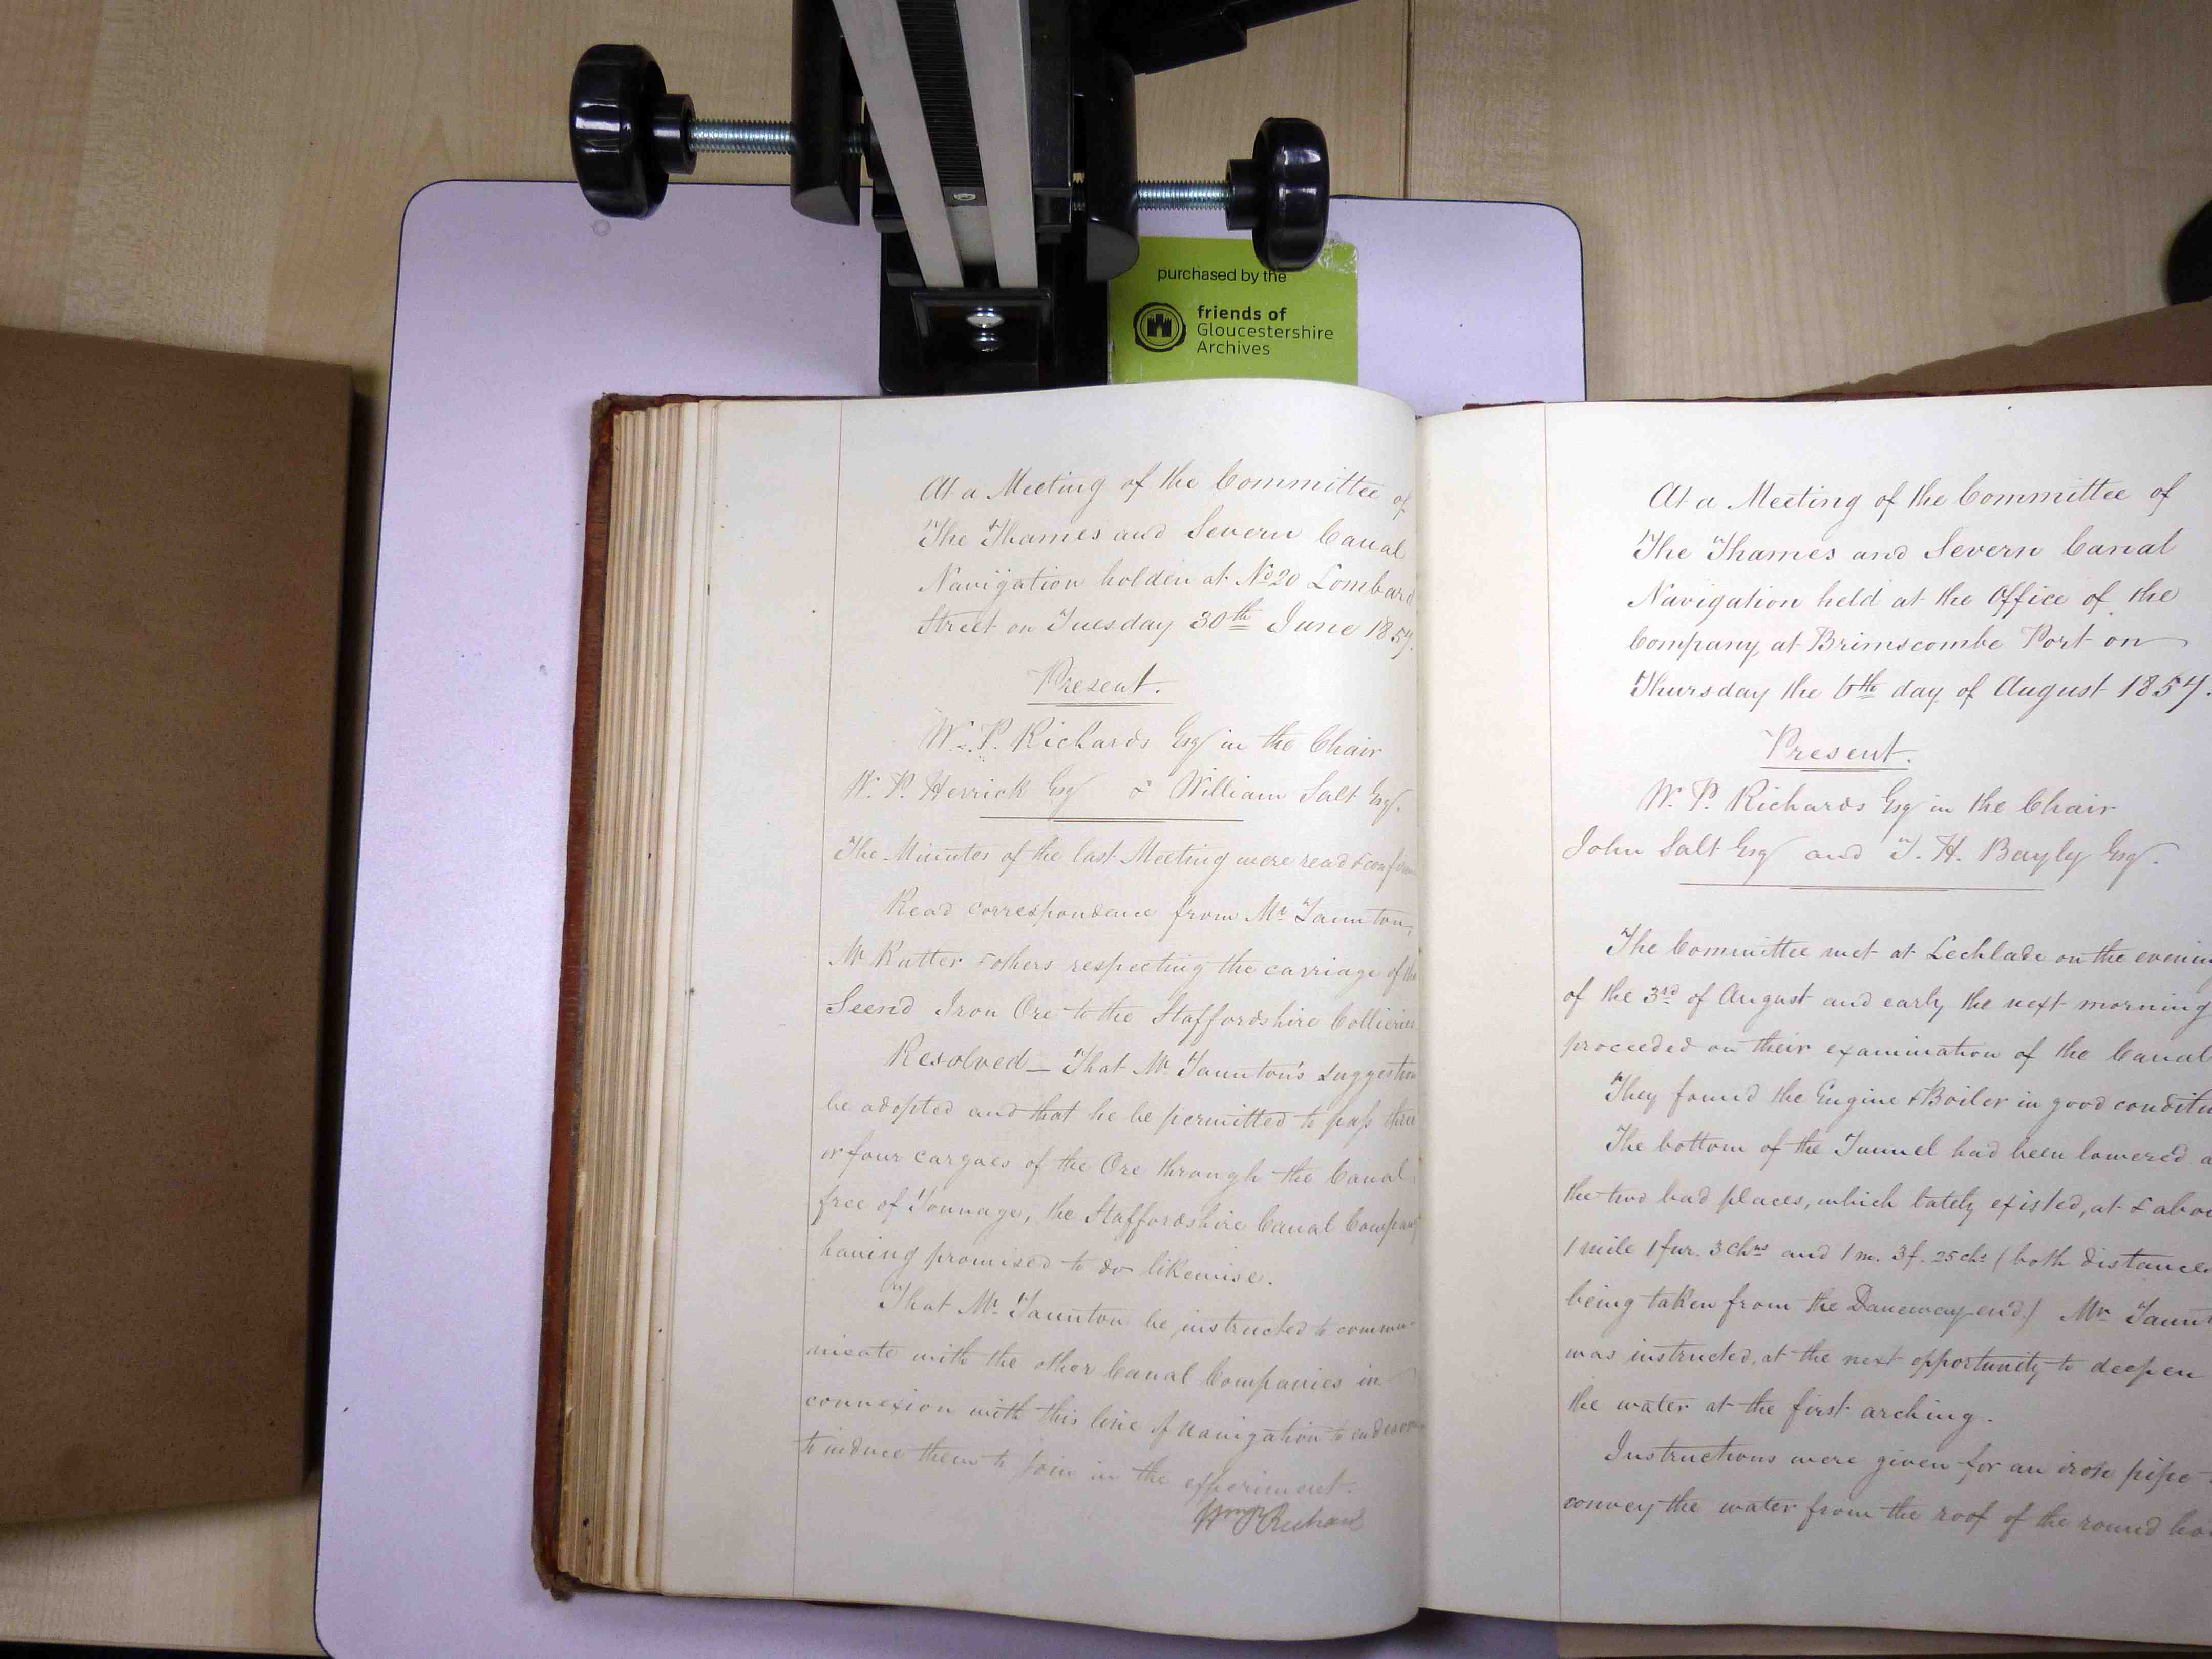 purchased by the
friends of
Gloucestershire
Archives
At a Meeting of the Committee of
The Thames and Severn Canal
Navigation holden at No 20 Lombard
Street on Tuesday 30th June 1857.
Present.
W. P. Richards Esq in the Chair
W. P. Herrick Esq & William Salt Esq.
The Minutes of the last Meeting were read & confirm
Read correspondence from Mr Taunton,
Mr Rutter & others respecting the carriage of the
Seend Iron Ore to the Staffordshire Collieries
Resolved _ That Mr Taunton's suggestion
be adopted and that he be permitted to pass three
or four cargoes of the Ore through the Canal
free of Tonnage, the Staffordshire Canal Company
having promised to do likewise.
That Mr Taunton be instructed to commu-
nicate with the other Canal Companies in
connexion with this line of Navigation to endeavour
to induce them to join in the experiment.
Richards
At a Meeting of the Committee of
The Thames and Severn Canal
Navigation held at the Office of the
Company at Brimscombe Port on
Thursday the 6th day of August 1857.
Present.
W. P. Richards Esq in the Chair
John Salt Esq and T. H. Bayly Esq.
The Committee met at Lechlade on the evenin
of the 3rd of August and early the next morning
proceeded on their examination of the Canal
They found the Engine & Boiler in good conditi
The bottom of the Tunnel had been lowered a
the two bad places, which lately existed, at & abou
1 mile 1 fur. 3 chns and 1 m. 3 f. 25 chs (both distances
being taken from the Daneway end.) Mr Taunt
was instructed, at the next opportunity to deepen
the water at the first arching.
Instructions were given for an iron pipe t
convey the water from the roof of the round ho